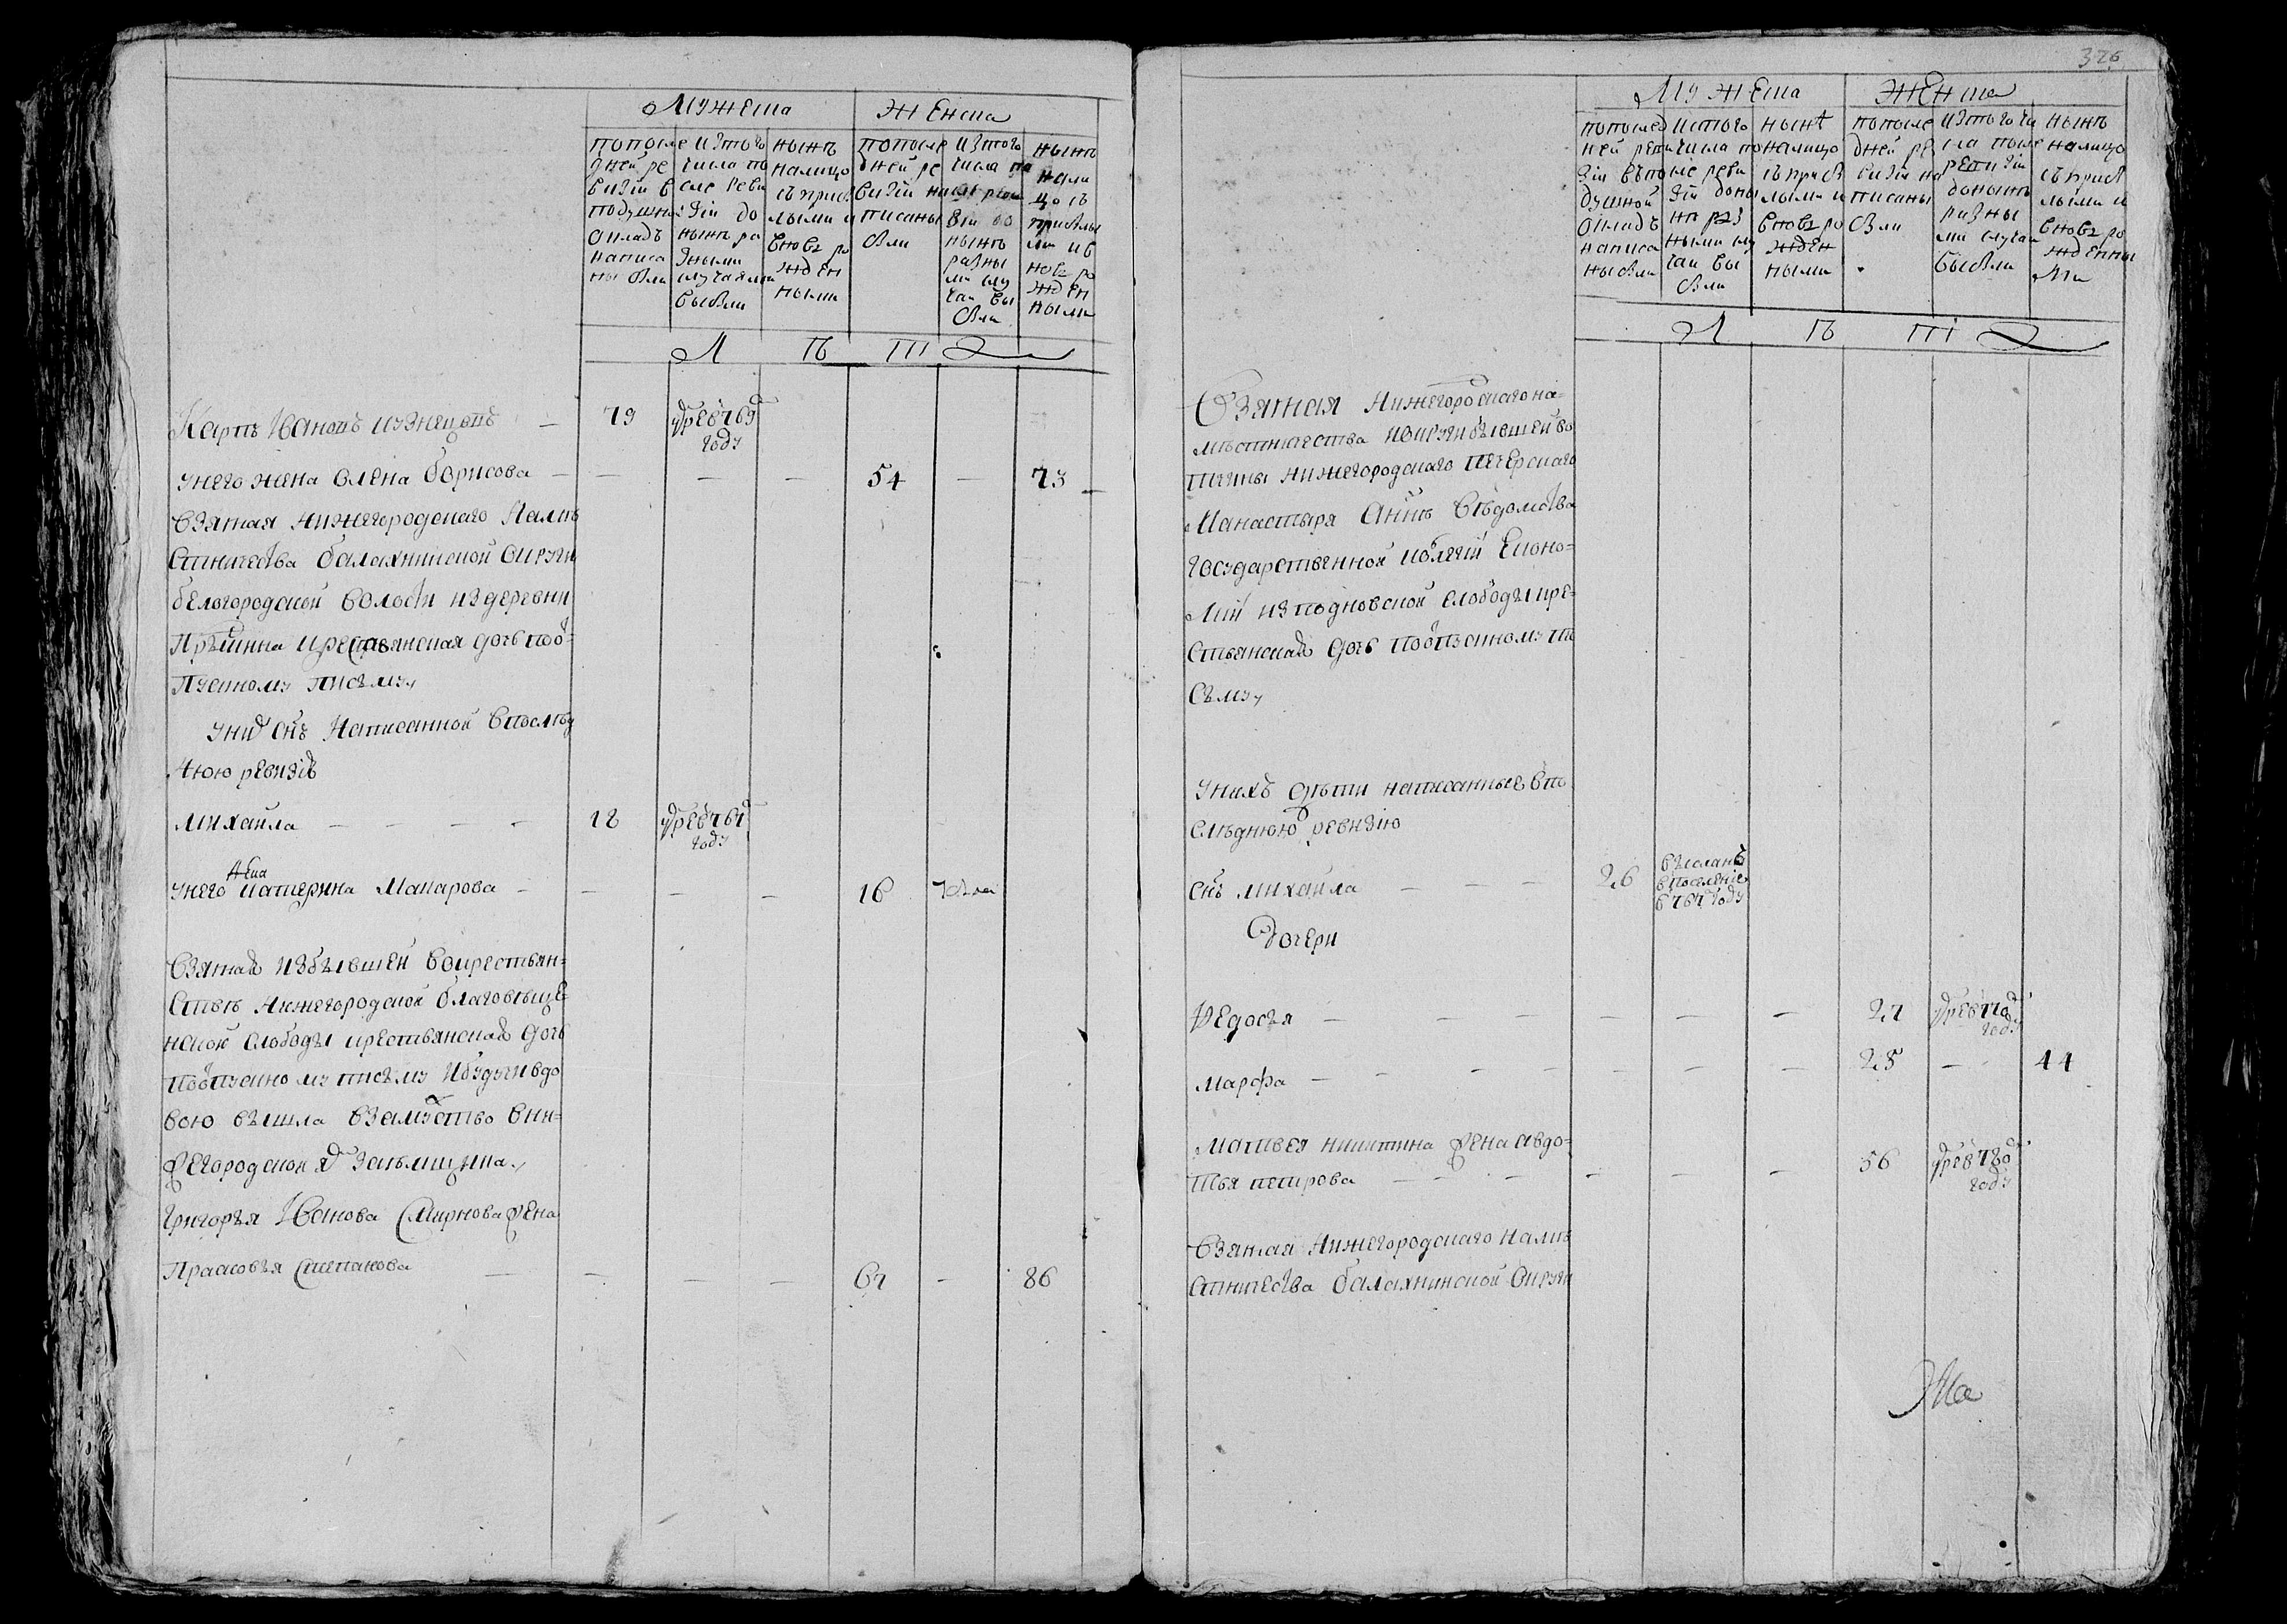 326
Мужеска
Женска
попосле
дней ре
визіи в
подушно
окладъ
написа
ны были
изтого
числа по
сле реви
зіи до
нынѣ ра
зными
случаями
выбыли
нынѣ
налицо
съ прибы
лыми и
вновь ро
жден
ными
попосле
дней ре
визіи на
писаны
были
изтого
числа по
зіи до
нынѣ
разны
ми слу
чаи вы
были
нынѣ
нали
цо съ
прибылы
ми ив
новь ро
жден
ными
Л Ѣ Т Ї
Карпъ Ивановъ кузнецовъ — 79 умре в 769 году
унего жена олена борисова — 54 — 73
Взятая нижегородскаго намѣ
стничества балахнинской округи
белогородской волости издеревни
крестьянская дочь поот=
пускному писъму,
уних снъ написанной впослѣд
нюю ревизію
михаила — 18 умре в 764 году
унего жена катерина макарова — 16
Взятая избывшей вокрестьян=
ствѣ нижегородской благовѣще
нской слободы крестьянская дочь
поотпускному писъму ибудучи вдо
вою вышла взамужство вни=
жегородской
григорья Иванова Смирнова жена
Прасковья Степанова — 67 — 86
Мужеска
Женска
попослед
ней реви
зіи въпо
душной
окладъ
написа
ны были
истого
числа по
сле реви
зіи доны
нѣ раз
ными слу
чаи вы
были
нынѣ
налицо
съ прибы
лыми и
вновь ро
жден
ными
попосле
дней ре
визіи на
писаны
были
изтого чи
сла после
ревизіи
донынѣ
разны
ми случаи
выбыли
нынѣ
налицо
съ прибы
лыми и
вновь ро
жденны
ми
Л Ѣ Т Ї
Взятая Нижегородскаго на=
мѣстничества иокруги бывшей во
тчины нижегородскаго печерскаго
манастыря анынѣ вѣдомства
государственной колегіи Еконо=
міи изподновской слободы кре=
стьянская дочь поотпускному пи
съму,
унихъ дѣти написанные впо
слѣднюю ревизію
снъ михаила — 26 въсланъ впоселеніе в 764 году
дочери
Федосъя — 27 умре в 770 году
марфа — 25 — 44
матвея никитина жена авдо=
тья петрова — 56 умре в 780 году
Взятая Нижегородскаго намѣ
стничества балахнинской округи